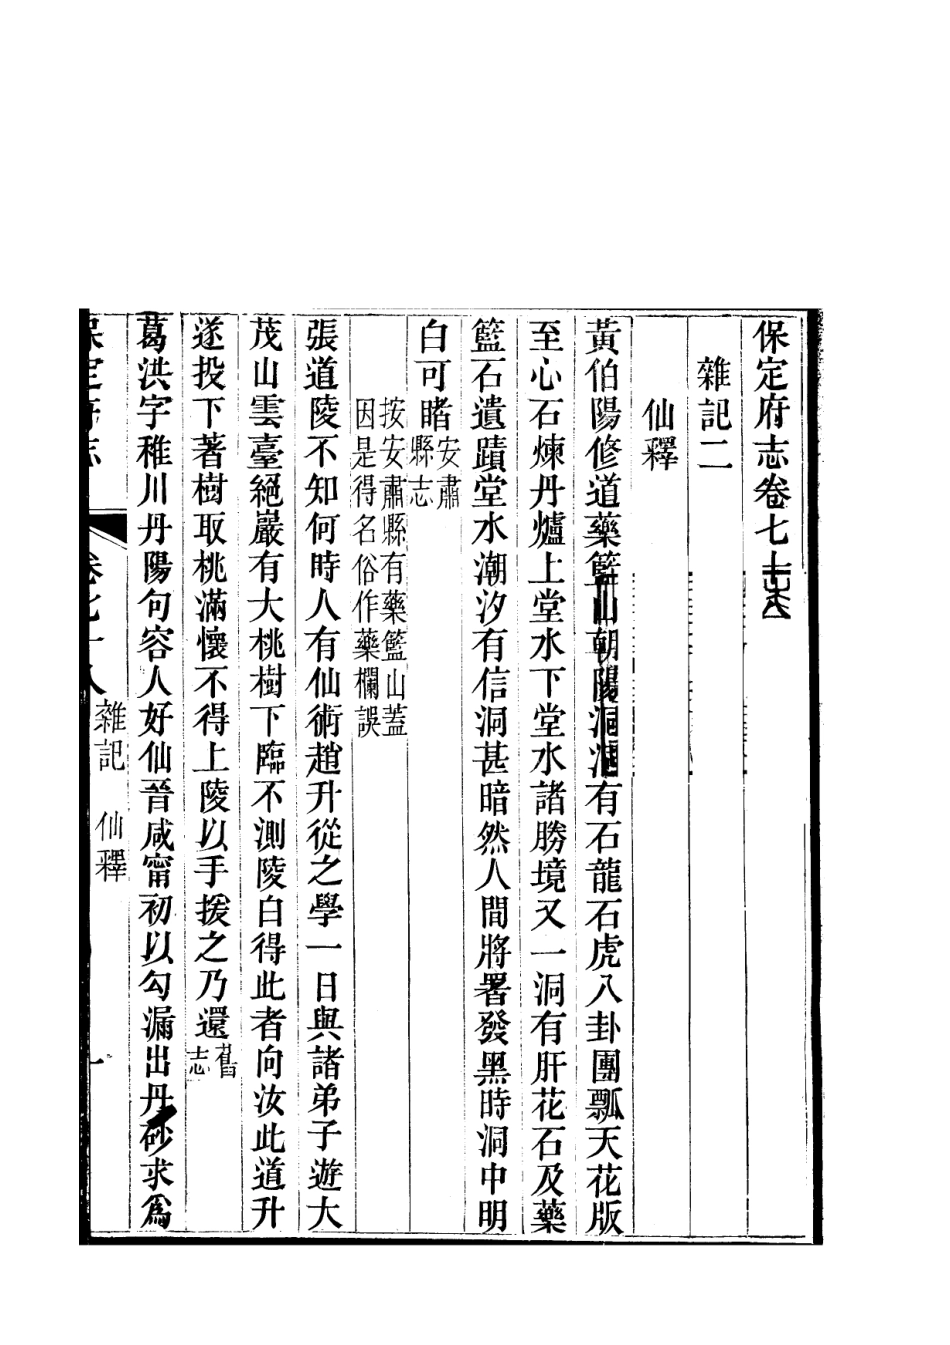 保定府志卷七十八
雜記二
仙釋
黃伯陽修道藥籃山朝陽洞洞有石龍石虎八卦團瓢天花版
至心石煉丹爐上堂水下堂水諸勝境又一洞有肝花石及藥
籃石遺蹟堂水潮汐有信洞甚暗然人間將署發黑時洞中明
白可睹安肅縣志
按安肅縣有藥籃山蓋
因是得名俗作藥欄誤
張道陵不知何時人有仙術趙升從之學一日與諸弟子遊大
茂山雲臺絕巖有大桃樹下臨不測陵白得此者向汝此道升
遂投下著樹取桃滿懷不得上陵以手援之乃還舊志
葛洪字稚川丹陽句容人好仙晉咸甯初以勾漏出丹砂求爲
保定府志
卷七十八
雜記
仙釋
一